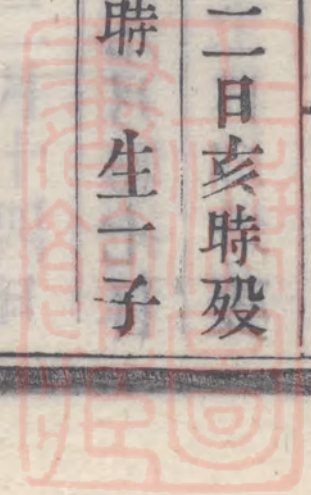 二日亥時殁
時　生一子